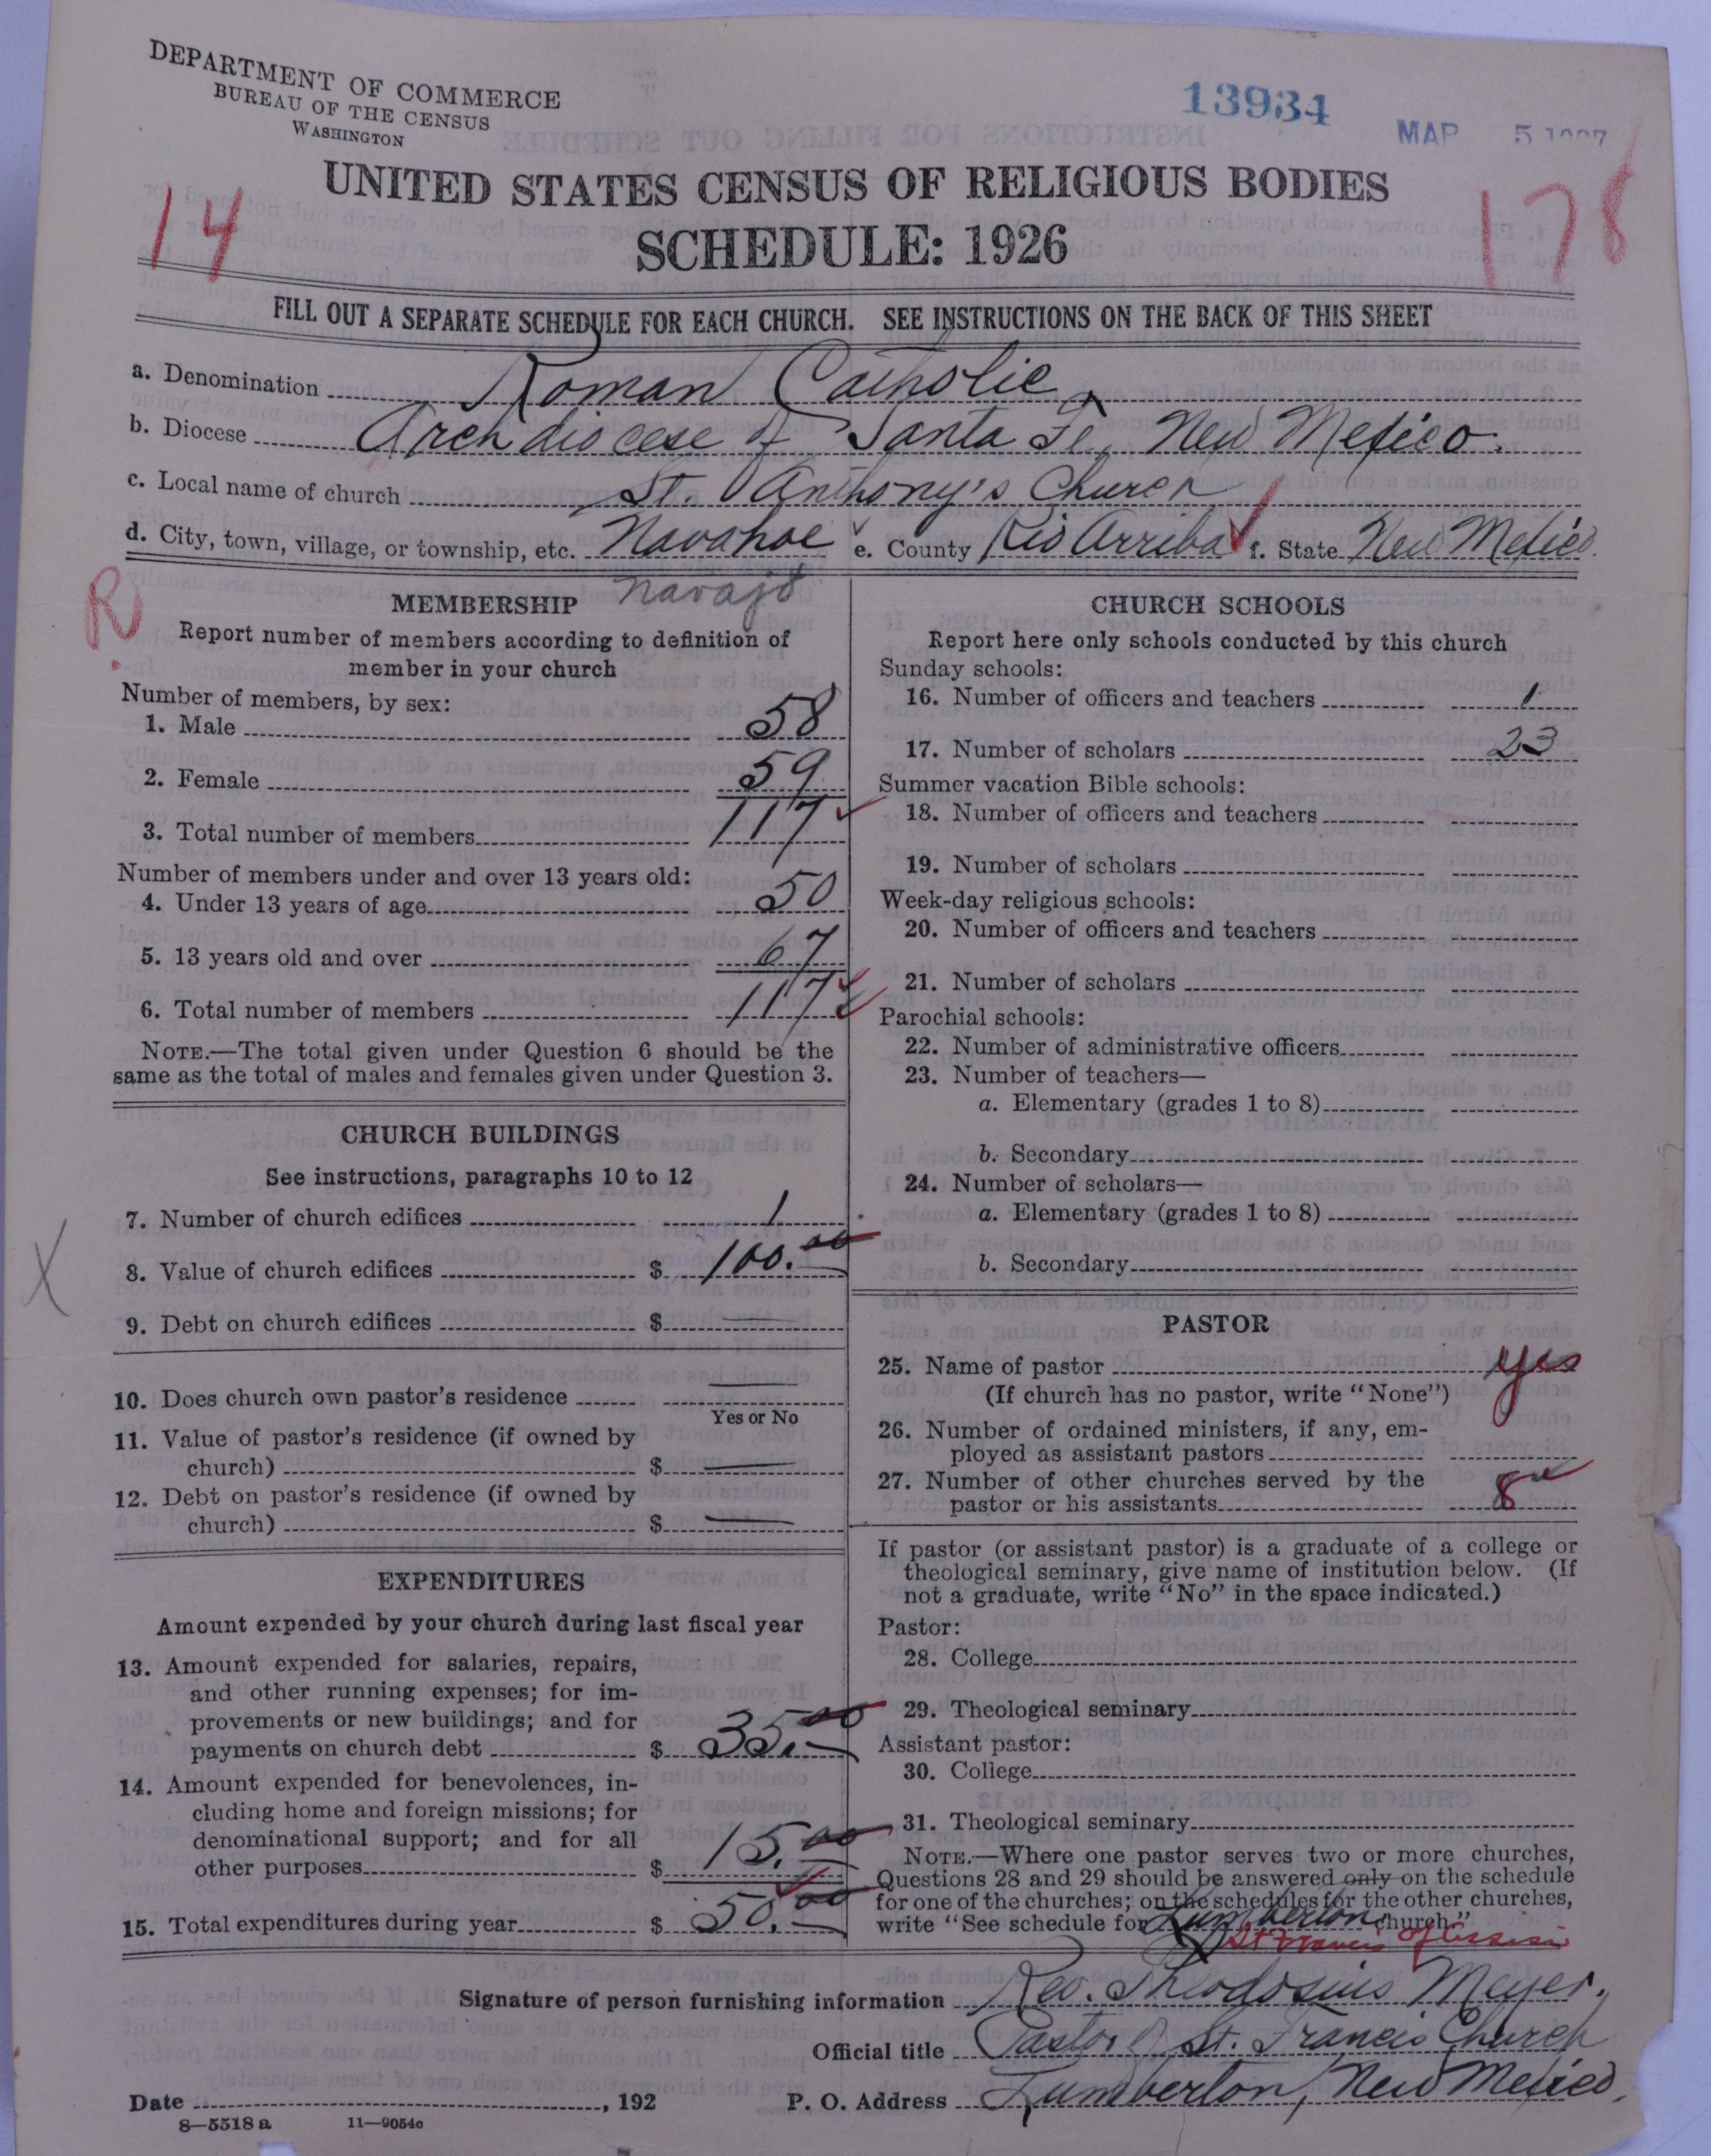 DEPARTMENT OF COMMERCE
BUREAU OF THE CENSUS
WASHINGTON
13934
MAR 5
14
UNITED STATES CENSUS OF RELIGIOUS BODIES
178
SCHEDULE: 1926
FILL OUT A SEPARATE SCHEDULE FOR EACH CHURCH. SEE INSTRUCTIONS ON THE BACK OF THIS SHEET
a. Denomination Roman Catholic
b. Diocese Archdiocese of Santa Fe, New Mexico.
c. Local name of church St. Anthony's Church
d. City, town, village, or township, etc. Navahoe e. County Rio Arriba f. State New Mexico.
Navajo
R
MEMBERSHIP
Report number of members according to definition of
member in your church
Number of members, by sex:
1. Male 58
2. Female 59
3. Total number of members 117
Number of members under and over 13 years old:
4. Under 13 years of age 50
5. 13 years old and over 67
6. Total number of members 117
NOTE.—The total given under Question 6 should be the
same as the total of males and females given under Question 3.
CHURCH BUILDINGS
See instructions, paragraphs 10 to 12
7. Number of church edifices 1
X
8. Value of church edifices $ 100.00
9. Debt on church edifices $ —
10. Does church own pastor's residence —
Yes or No
11. Value of pastor's residence (if owned by
church) $ —
12. Debt on pastor's residence (if owned by
church) $ —
EXPENDITURES
Amount expended by your church during last fiscal year
13. Amount expended for salaries, repairs,
and other running expenses; for im-
provements or new buildings; and for
payments on church debt $ 35.00
14. Amount expended for benevolences, in-
cluding home and foreign missions; for
denominational support; and for all
other purposes $ 15.00
15. Total expenditures during year $ 50.00
CHURCH SCHOOLS
Report here only schools conducted by this church
Sunday schools:
16. Number of officers and teachers 1
17. Number of scholars 23
Summer vacation Bible schools:
18. Number of officers and teachers
19. Number of scholars
Week-day religious schools:
20. Number of officers and teachers
21. Number of scholars
Parochial schools:
22. Number of administrative officers
23. Number of teachers—
a. Elementary (grades 1 to 8)
b. Secondary
24. Number of scholars—
a. Elementary (grades 1 to 8)
b. Secondary
PASTOR
25. Name of pastor yes
(If church has no pastor, write "None")
26. Number of ordained ministers, if any, em-
ployed as assistant pastors
27. Number of other churches served by the
pastor or his assistants 8
If pastor (or assistant pastor) is a graduate of a college or
theological seminary, give name of institution below. (If
not a graduate, write "No" in the space indicated.)
Pastor:
28. College
29. Theological seminary
Assistant pastor:
30. College
31. Theological seminary
NOTE.—Where one pastor serves two or more churches,
Questions 28 and 29 should be answered only on the schedule
for one of the churches; on the schedules for the other churches,
write "See schedule for Lumberton church."
St Francis of Assisi
Signature of person furnishing information Rev. Theodosius Meyer.
Official title Pastor of St. Francis Church
Date , 192 P. O. Address Lumberton, New Mexico.
8—5518 a 11—9054c